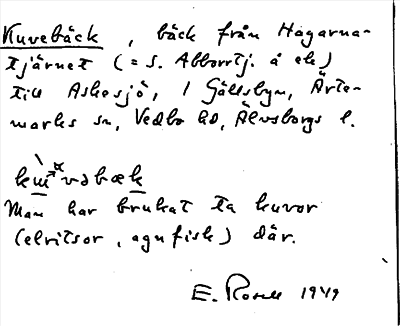 Kuvebäck, bäck från Hagarna-
tjärnet (= S. Abborrtj. å ek)
till Askesjö, i Gällsbyn, Ärte-
marks sn, Vedbo hd, Älvsborgs l.
Man har brukat ta kuvor
(elritsor, agnfisk) där.
E. Rosell 1949